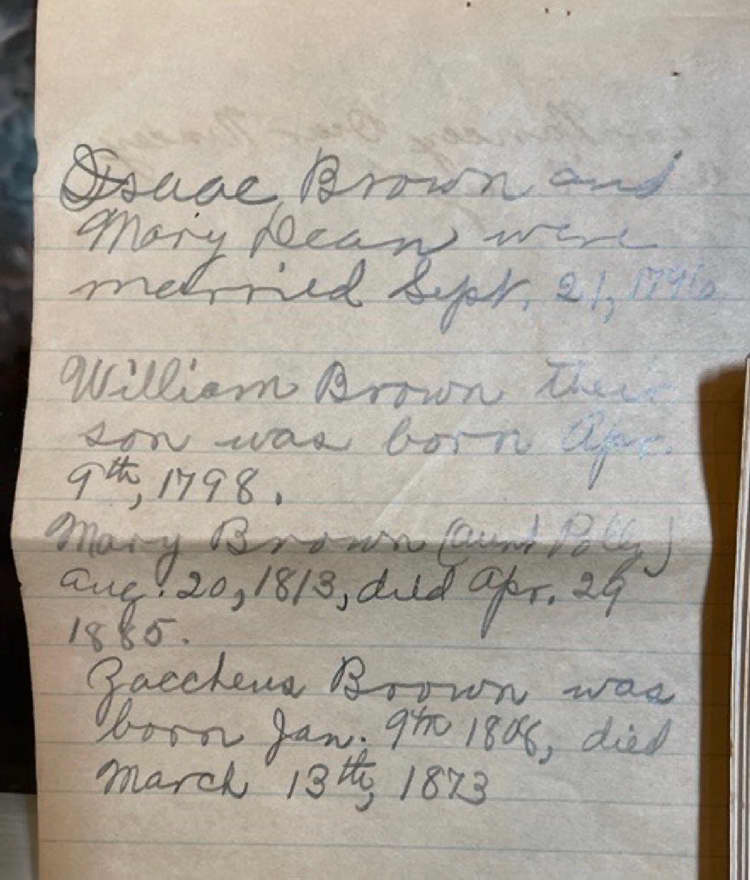 Isaac Brown and
Mary Dean were
married Sept. 21,
William Brown their
son was born Apr.
9th, 1798.
Mary Brown (aunt Polly)
aug. 20, 1813, died Apr. 29
1885.
Zaccheus Brown was
born Jan. 9th died
March 13th, 1873